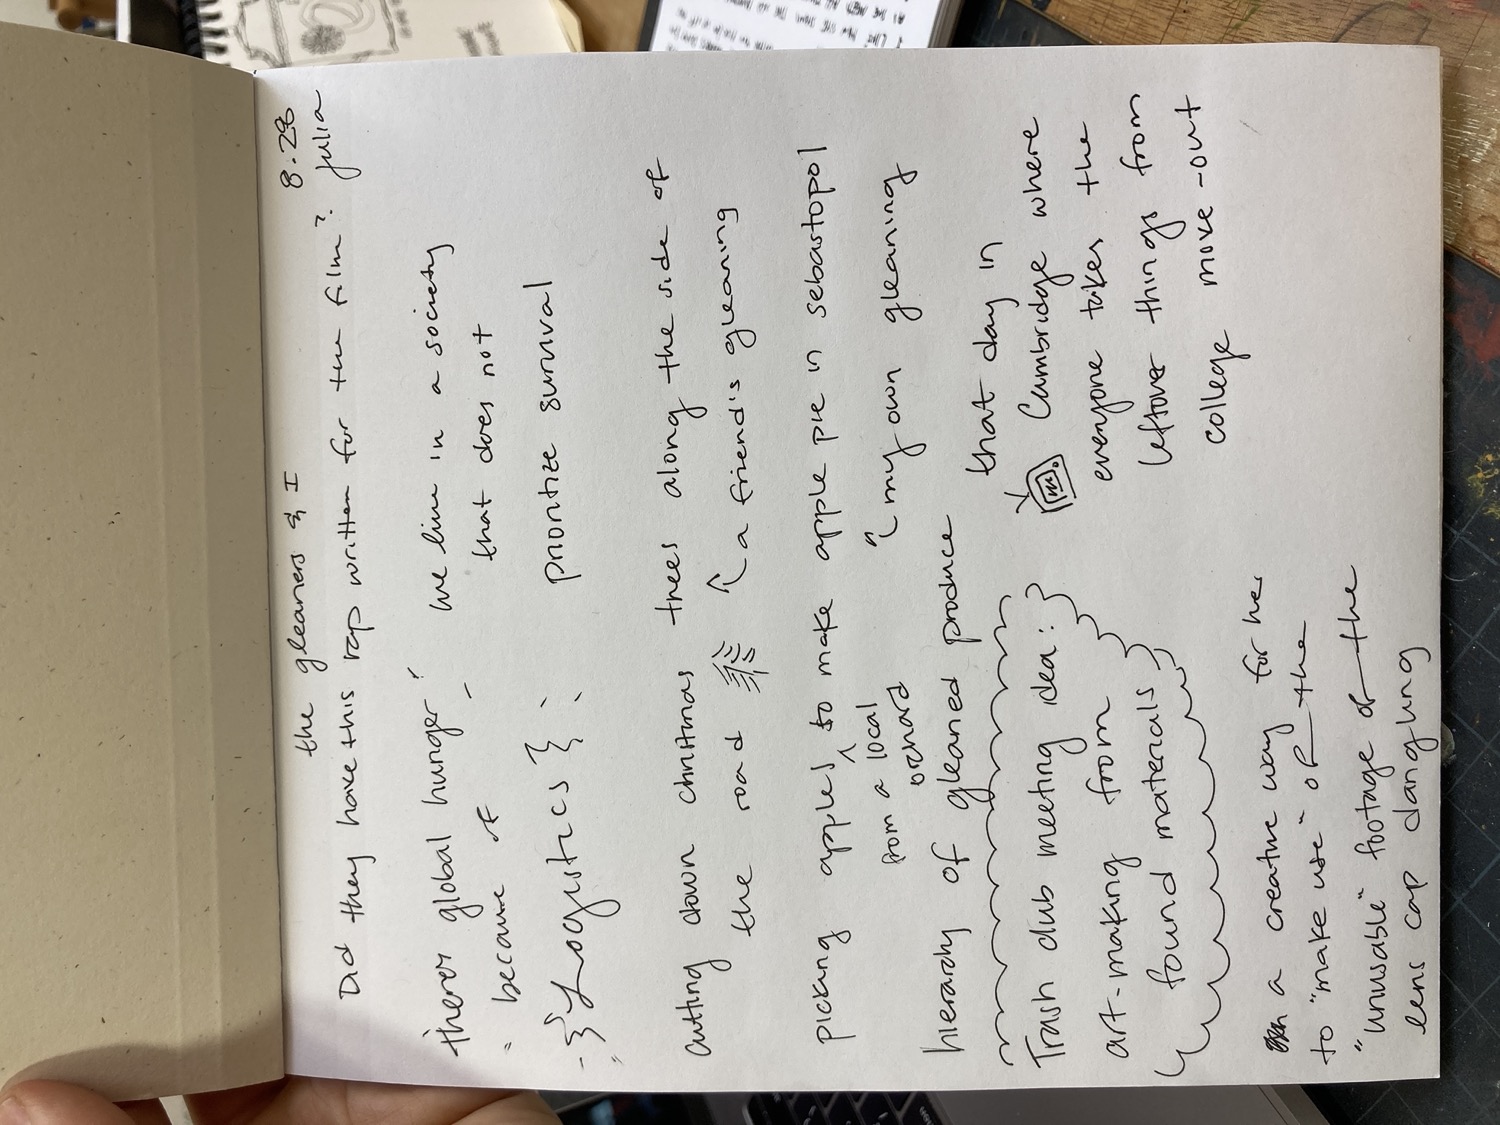 the gleaners & I
8.28
Julia
Did they have this rap written for the film?
there's global hunger
because of
Logistics
we live in a society
that does not
prioritize survival
cutting down christmas trees along the side of
the road
a friend's gleaning
picking apples to make apple pie in sebastopol
from a local
orchard
my own gleaning
hierarchy of gleaned produce
that day in
Cambridge where
everyone takes the
leftover things from
college move-out
Trash club meeting idea:
art-making from
found materials
a creative way for her
to "make use" of the
"unusable" footage of the
lens cap dangling